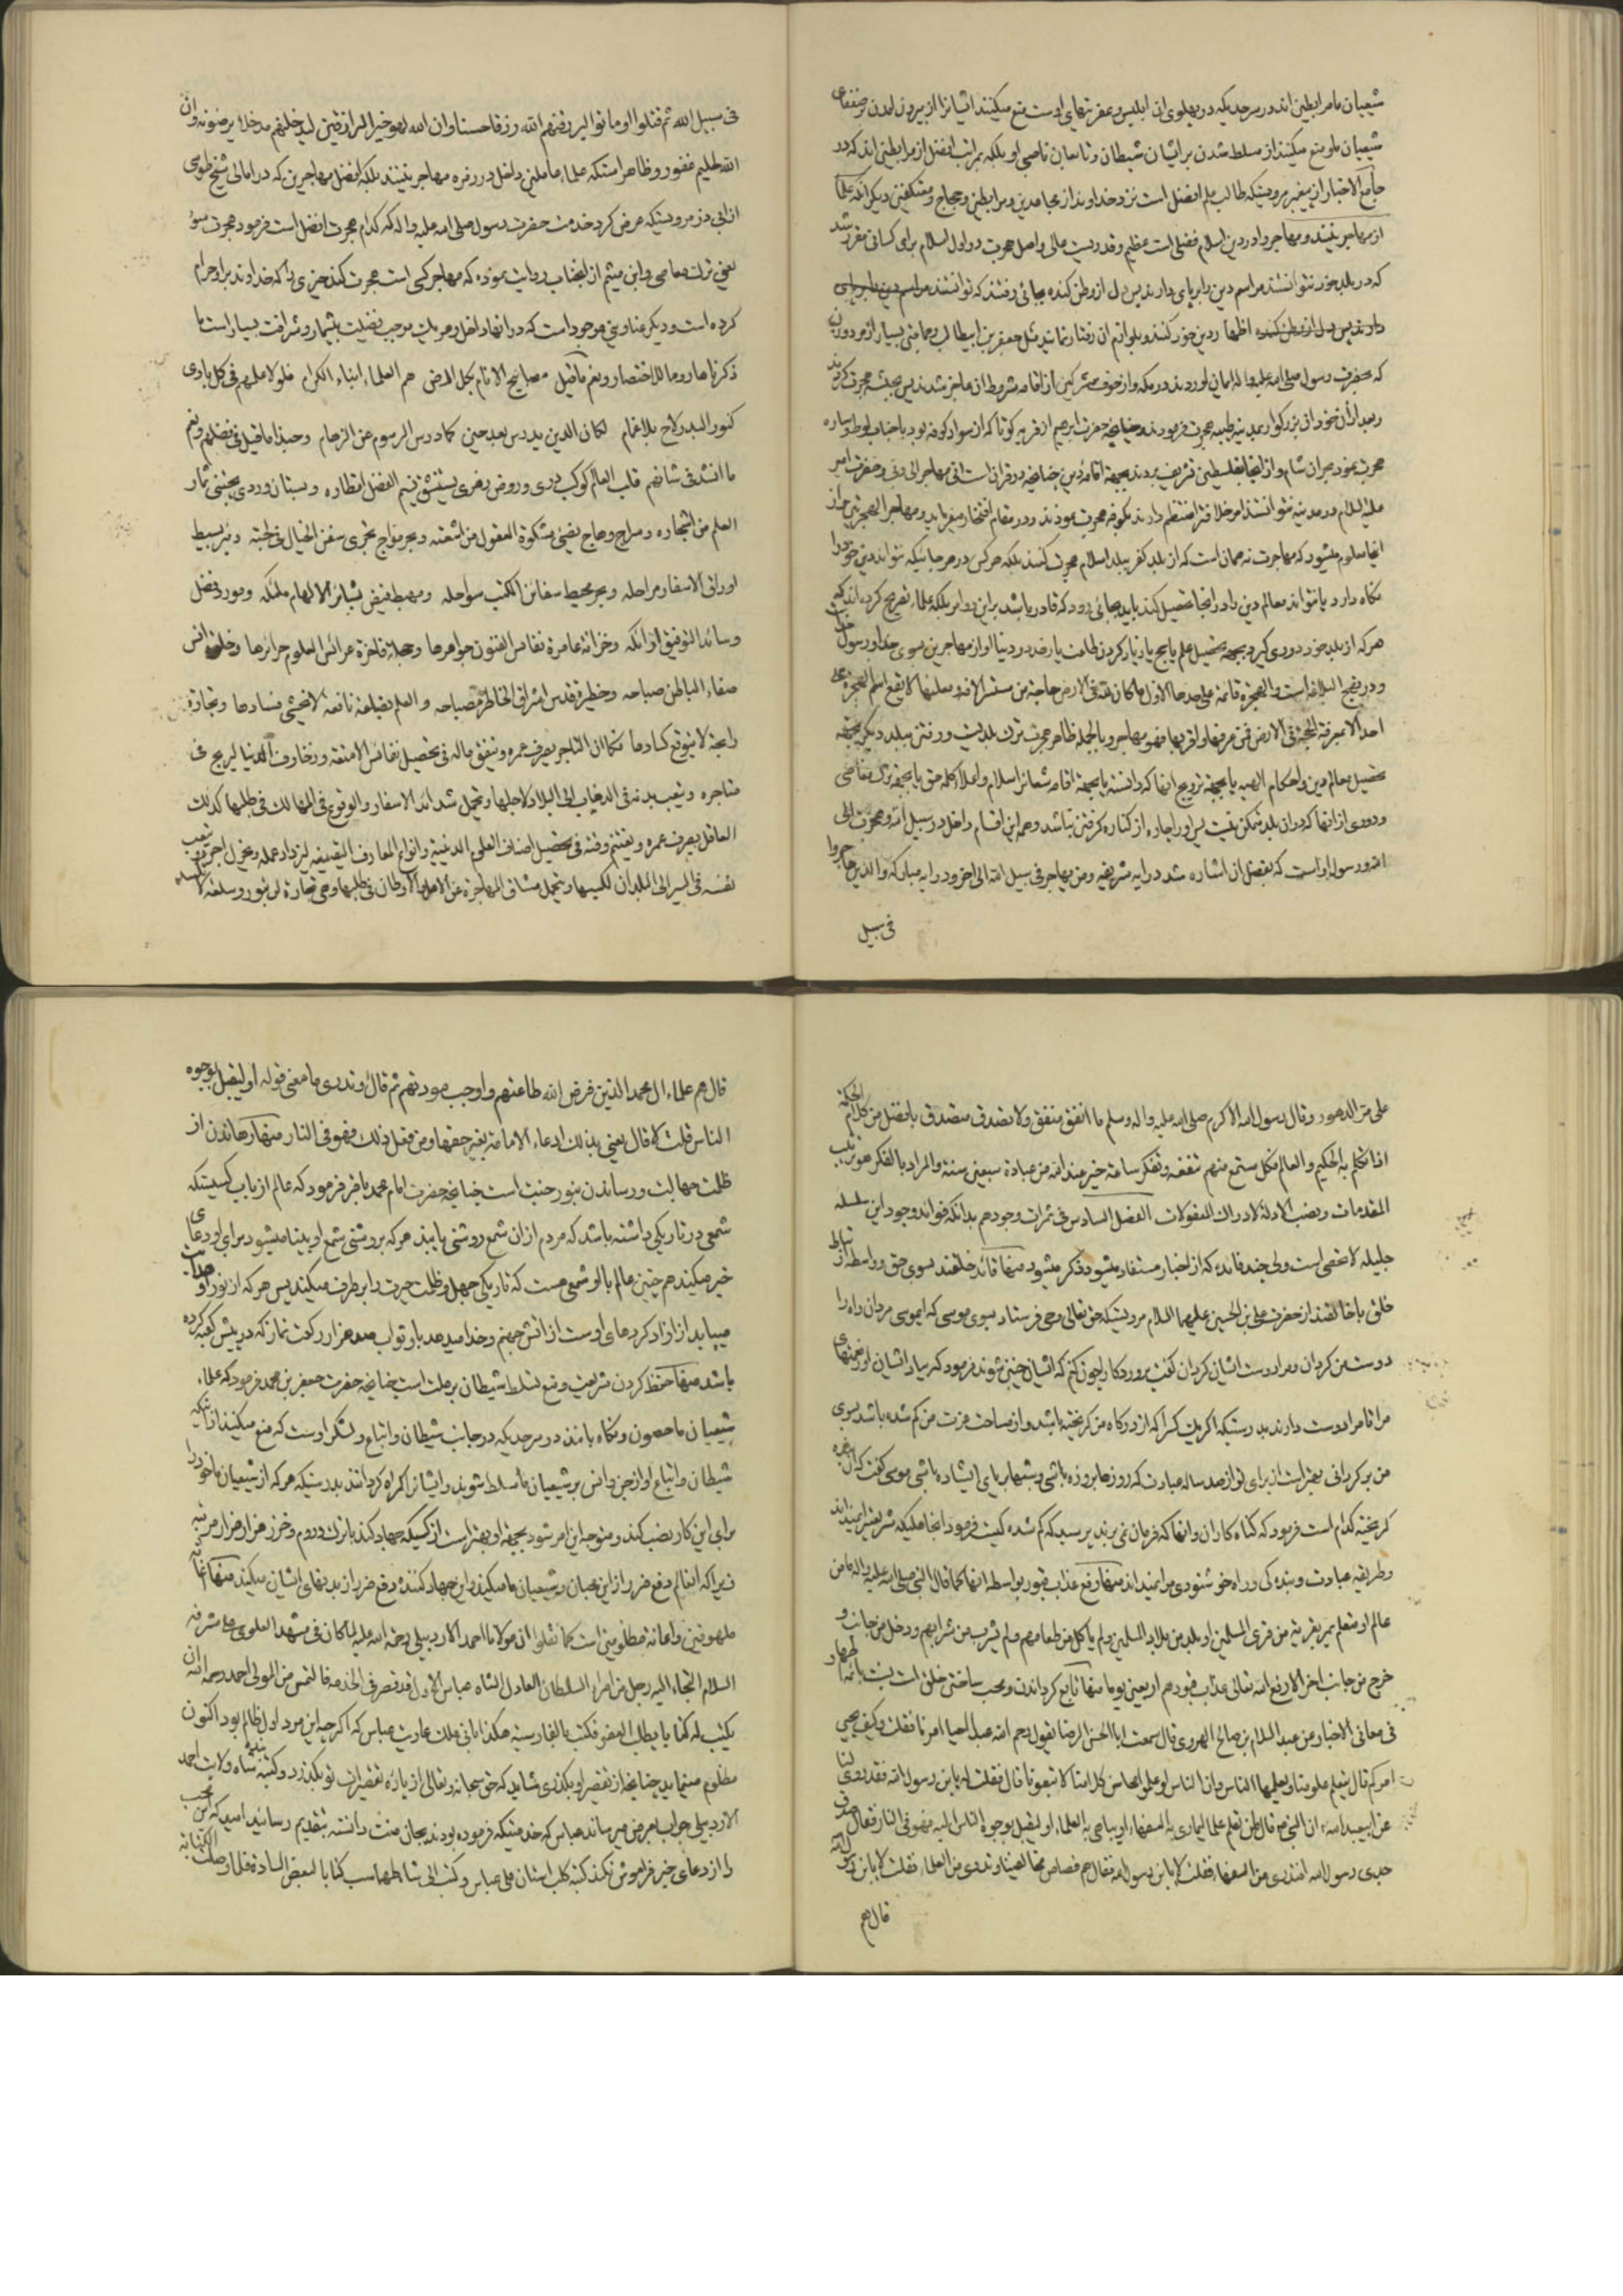 شیعیان ما مرابطین اند در سرحدیکه در پهلوی ان ابلیس و عفریتهای اوست منع میکنند ایشانرا از بیرون امدن بر ضعفای
شیعیان ما و منع میکنند از مسلط شدن بر ایشان شیطان و تابعان ناصبی او بلکه بمراتب افضل از مرابطین اند که در
جامع الاخبار از پیغمبر مرویستکه طالب علم افضل است نزد خداوند از مجاهدین و مرابطین و حجاج و معتکفین دیگر انکه علما
از مهاجرینند و مهاجر را در دین اسلام فضلی است عظیم و قدریست عالی و اصل هجرت در اول اسلام برای کسانی مقرر شد
که در بلد خود نتوانستند مراسم دین را برپای دارند پس دل از وطن کنده بجائی رفتند که توانستند مراسم دین را برپای
دارند پس دل از وطن کنده اظهار دین خود کنند و بلوازم ان رفتار نمایند مثل جعفر بن ابیطالب و جماعتی بسیار از مرد و زن
که بحضرت رسول صلی الله علیه و اله ایمان اوردند در مکه و از خوف مشرکین از اقامه شروط ان عاجز شدند پس بحبشه هجرت کردند
و بعد از ان خود ان بزرگوار بمدینه طیبه هجرت فرمودند و چنانچه حضرت ابرهیم از قریه کوثا که از سواد کوفه بود با جناب لوط و ساره
هجرت نمود بحران شام و از انجا بفلسطین تشریف بردند بجهة اقامه دین چنانچه در قران است انی مهاجر الی ربی و حضرت امیر
علیه السلام در مدینه نتوانستند امر خلافترا منتظم دارند بکوفه هجرت نمودند و در مقام افتخار میفرماید و مهاجر الهجرتین و از
اینجا معلوم میشود که مهاجرت نه همان است که از بلد کفر ببلد اسلام هجرت کنند بلکه هر کس در هر جا نیکه نتواند دین خود را
نگاه دارد یا نتواند معالم دین را در انجا تحصیل کند باید بجائی رود که قادر باشد بر این دو امر بلکه علماء تصریح کرده اند که
هر که از بلد خود دوری گیرد بجهة تحصیل علم یا حج یا زیاد کردن طاعت یا زهد در دنیا او از مهاجرین بسوی خدا و رسول خدا است
و در نهج البلاغه است و الهجرة قائمة علی حدها الاول ما کان لله فی الارض حاجة من مستسر الامة و معلنها لا یقع اسم الهجرة علی
احد الا بمعرفة الحجة فی الارض فمن عرفها و اقر بها فهو مهاجر و بالجمله ظاهر هجرت ترک بلدیست و رفتن ببلد دیگر بجهة
تحصیل معالم دین و احکام الهیه یا بجهة ترویج انها که دانسته یا بجهة اقامه شعائر اسلام و اعلاء کلمه حق یا بجهة ترک معاصی
و دوری از انها که در ان بلد ممکن نیست پس او را چاره از کناره گرفتن نباشد و همه این اقسام داخل در سبیل الله و هجرت الی
الله و رسوله او است که بفضل ان اشاره شد در ایه شریفه و من یهاجر فی سبیل الله الی اخر و در ایه مبارکه و الذین هاجروا
فی سبیل
فی سبیل الله ثم قتلوا او ماتوا لیرزقنهم الله رزقا حسنا و ان الله لهو خیر الرازقین لیدخلنهم مدخلا یرضونه و ان
الله لحلیم غفور و ظاهر استکه علماء عاملین داخل در زمره مهاجرینند بلکه افضل مهاجرین که در امالی شیخ طوسی
از ابی ذر مرویستکه عرض کرد خدمت حضرت رسول صلی الله علیه و اله که کدام هجرت افضل است فرمود هجرت سوء
یعنی ترک معاصی و ابن میثم از انجناب روایت نموده که مهاجر کسی است هجرت کند چیزی را که خداوند بر او حرام
کرده است و دیگر عناوینی موجود است که در انها داخل و هر یک موجب فضیلت بیشمار و شرافت بسیار است ما
ذکر ناها روما للاختصار و نعم ما قیل مصابیح الانام بکل ارض هم العلماء ابناء الکرام فلولا علمهم فی کل بادی
کنور البدر لاح بلا غمام لکان الدین یدرس بعد حین کما درس الرسوم من الرهام و حبذا ما قیل فی فضلهم و نعم
ما انشد فی شانهم قلب العالم کوکب دری و روض زهری یستنشق نسیم الفضل اقطاره و بستان وردی یجتنی ثمار
العلم من اشجاره و سراج وهاج یضیئ مشکوة العقول من اشعته و بحر مواج تجری سفن الخیال فی لجته و بر بسیط
اوراق الاسفار مراحله و بحر محیط سفائن الکتب سواحله و مهبط فیض بشائر الالهام ملئکه و مورد فضل
وسائد التوفیق ارائکه و خزانة عامرة نفائس الفنون جواهرها و حجلة فاخرة عرائس العلوم حرائرها و خلوة انس
صفاء الباطن صباحه و حظیرة قدس اشراق الخاطر مصباحه و العلم بضاعة نافعة لا یخشی فسادها و تجارة
رابحة لا یتوقع کسادها فکما ان التاجر یصرف عمره و ینفق ماله فی تحصیل نفائس الامتعة و زخارف الدنیا لیربح فی
متاجره و یتعب بدنه فی الذهاب الی البلاد لاجلها و تحمل شدائد الاسفار و الوقوع فی المهالک فی طلبها کذلک
العاقل یصرف عمره و یغتنم وقته فی تحصیل اصناف العلوم الدینیة و انواع المعارف الیقینیة لیزداد عمله و یجزل اجره و یتعب
نفسه فی السیر الی البلدان لکسبها و یتحمل مشاق المهاجرة عن الاهل و الاوطان فی طلبها و هی تجارة لن تبور و سلعة لا
علی مر الدهور و قال رسول الله الاکرم صلی الله علیه و اله و سلم ما انفق منفق و لا تصدق متصدق بافضل من کلام الحکمة
اذا تکلم به الحکیم و العالم فکل مستمع منهم منفعة و تفکر ساعة خیر عند الله من عبادة سبعین سنة و المراد بالفکر هو ترتیب
المقدمات و نصب الادلة لادراک المعقولات الفصل السادس فی ثمرات وجودهم بدانکه فواید وجود این سلسله
جلیله لا تحصی است ولی چند فائده که از اخبار مستفاد میشود ذکر میشود منها قائد خلقند بسوی حق و واسطه ارتباط
خلق با خالقند از حضرت علی بن الحسین علیهما السلام مرویستکه حق تعالی وحی فرستاد بسوی موسی که ایموسی مردان راه را
دوست من گردان و مرا دوست ایشان گردان گفت پروردگارا چون کنم که ایشان چنین شوند فرمود که بیاد ایشان اور نعمتهای
مرا تا مرا دوست دارند بدرستیکه اگر یک کس را که از درگاه من گریخته باشد و از ساحت عزت من گم شده باشد بسوی
من برگردانی بهتر است از برای تو از صد ساله عبادت که روزها بروزه باشی و شبها برپای ایستاده باشی موسی گفت که ان بنده
گریخته کدام است فرمود که گناه کاران و انها که فرمان نمی برند پرسید که گم شده کیست فرمود انجاهلیکه شریعتر نمیداند
و طریقه عبادت و بندگی و راه خوشنودی مرا نمیداند منها رفع عذاب قبور بواسطه انها کما قال النبی صلی الله علیه و اله ما من
عالم او متعلم یمر بقریة من قری المسلمین او بلد من بلاد المسلمین و لم یاکل من طعامهم و لم یشرب من شرابهم و دخل من جانب و
خرج من جانب اخر الا رفع الله تعالی عذاب قبورهم اربعین یوما منها تابع گرداندن و محب ساختن خلق است نسبت بائمه اطهار
فی معانی الاخبار عن عبد السلام بن صالح الهروی قال سمعت ابا الحسن الرضا یقول رحم الله عبدا احیا امرنا فقلت و کیف یحیی
امرکم قال یتعلم علومنا و یعلمها الناس فان الناس لو علموا محاسن کلامنا لاتبعونا قال فقلت له یابن رسول الله فقد روی لنا
عن ابیعبدالله ان النبی ص قال من تعلم علما لیماری به السفهاء او یباهی به العلماء او لیقبل بوجوه الناس الیه فهو فی النار فقال صدق
جدی رسول الله افتدری من السفهاء فقلت لا یابن رسول الله فقال هم قصاص مخالفینا و تدری من العلماء فقلت لا یابن رسول الله
قال هم
قال هم علماء ال محمد الذین فرض الله طاعتهم و اوجب مودتهم ثم قال و تدری ما معنی قوله او لیقبل بوجوه
الناس قلت لا قال یعنی بذلک ادعاء الامامة بغیر حقها و من فعل ذلک فهو فی النار منها رهاندن از
ظلمت جهالت و رساندن بنور جنت است چنانچه حضرت امام محمد باقر فرمود که عالم از باب کسیستکه
شمعی در تاریکی داشته باشد که مردم از ان شمع روشنی یابند هر که بروشنی شمع او بینا میشود برای او دعای
خیر میکند همچنین عالم با او شمعی هست که تاریکی جهل و ظلمت حیرت را برطرف میکند پس هر که از نور او هدایت
مییابد از ازاد کردهای اوست از اتش جهنم و خدا میدهد باو ثواب صد هزار رکعت نماز که در پیش کعبه کرده
باشد منها حفظ کردن شریعت و منع تسلط شیطان بر ملت است چنانچه حضرت جعفر بن محمد فرمود که علماء
شیعیان ما حصون و نگاه بانند در سرحدیکه در جانب شیطان و اتباع و لشگر اوست که منع میکنند از انکه
شیطان و اتباع او از جن و انس بر شیعیان ما مسلط شوند و ایشانرا گمراه گردانند بدرستیکه هر که از شیعیان ما خود را
برای این کار نصب کند و متوجه این امر شود بجهة او بهتر است از کسیکه جهاد کند با ترک و روم و خزر هزار هزار مرتبه
زیرا که انعالم دفع ضرر از این محبان و شیعیان ما میکند و این جهاد کننده دفع ضرر از بدنهای ایشان میکند منها اغاثه
ملهوفین و اعانه مظلومین است کما نقلوا ان مولانا احمد الاردبیلی رحمة الله علیه لما کان فی مشهد العلوی علی مشرفه
السلام التجاء الیه رجل من امراء السلطان العادل الشاه عباس الاول قد قصر فی الخدمة فالتمس من المولی احمد رحمه الله ان
یکتب له کتابا یطلب العفو فکتب بالفارسیه هکذا بانی ملک عاریت عباس که اگرچه این مرد اول ظالم بود اکنون
مظلوم مینماید چنانچه از تقصیر او بگذری شاید که حق سبحانه و تعالی از پاره تقصیرات تو بگذرد و کتبه بنده شاه ولایت احمد
الاردبیلی جواب بعرض میرساند عباس که خدمتیکه فرموده بودند بجان منت دانسته بتقدیم رسانید امید که این محب
را از دعای خیر فراموش نکنند کتبه کلب استان علی عباس و کتب الی شاه طهماسب کتابا لبعض السادة فلما وصلت الکتابة الیه